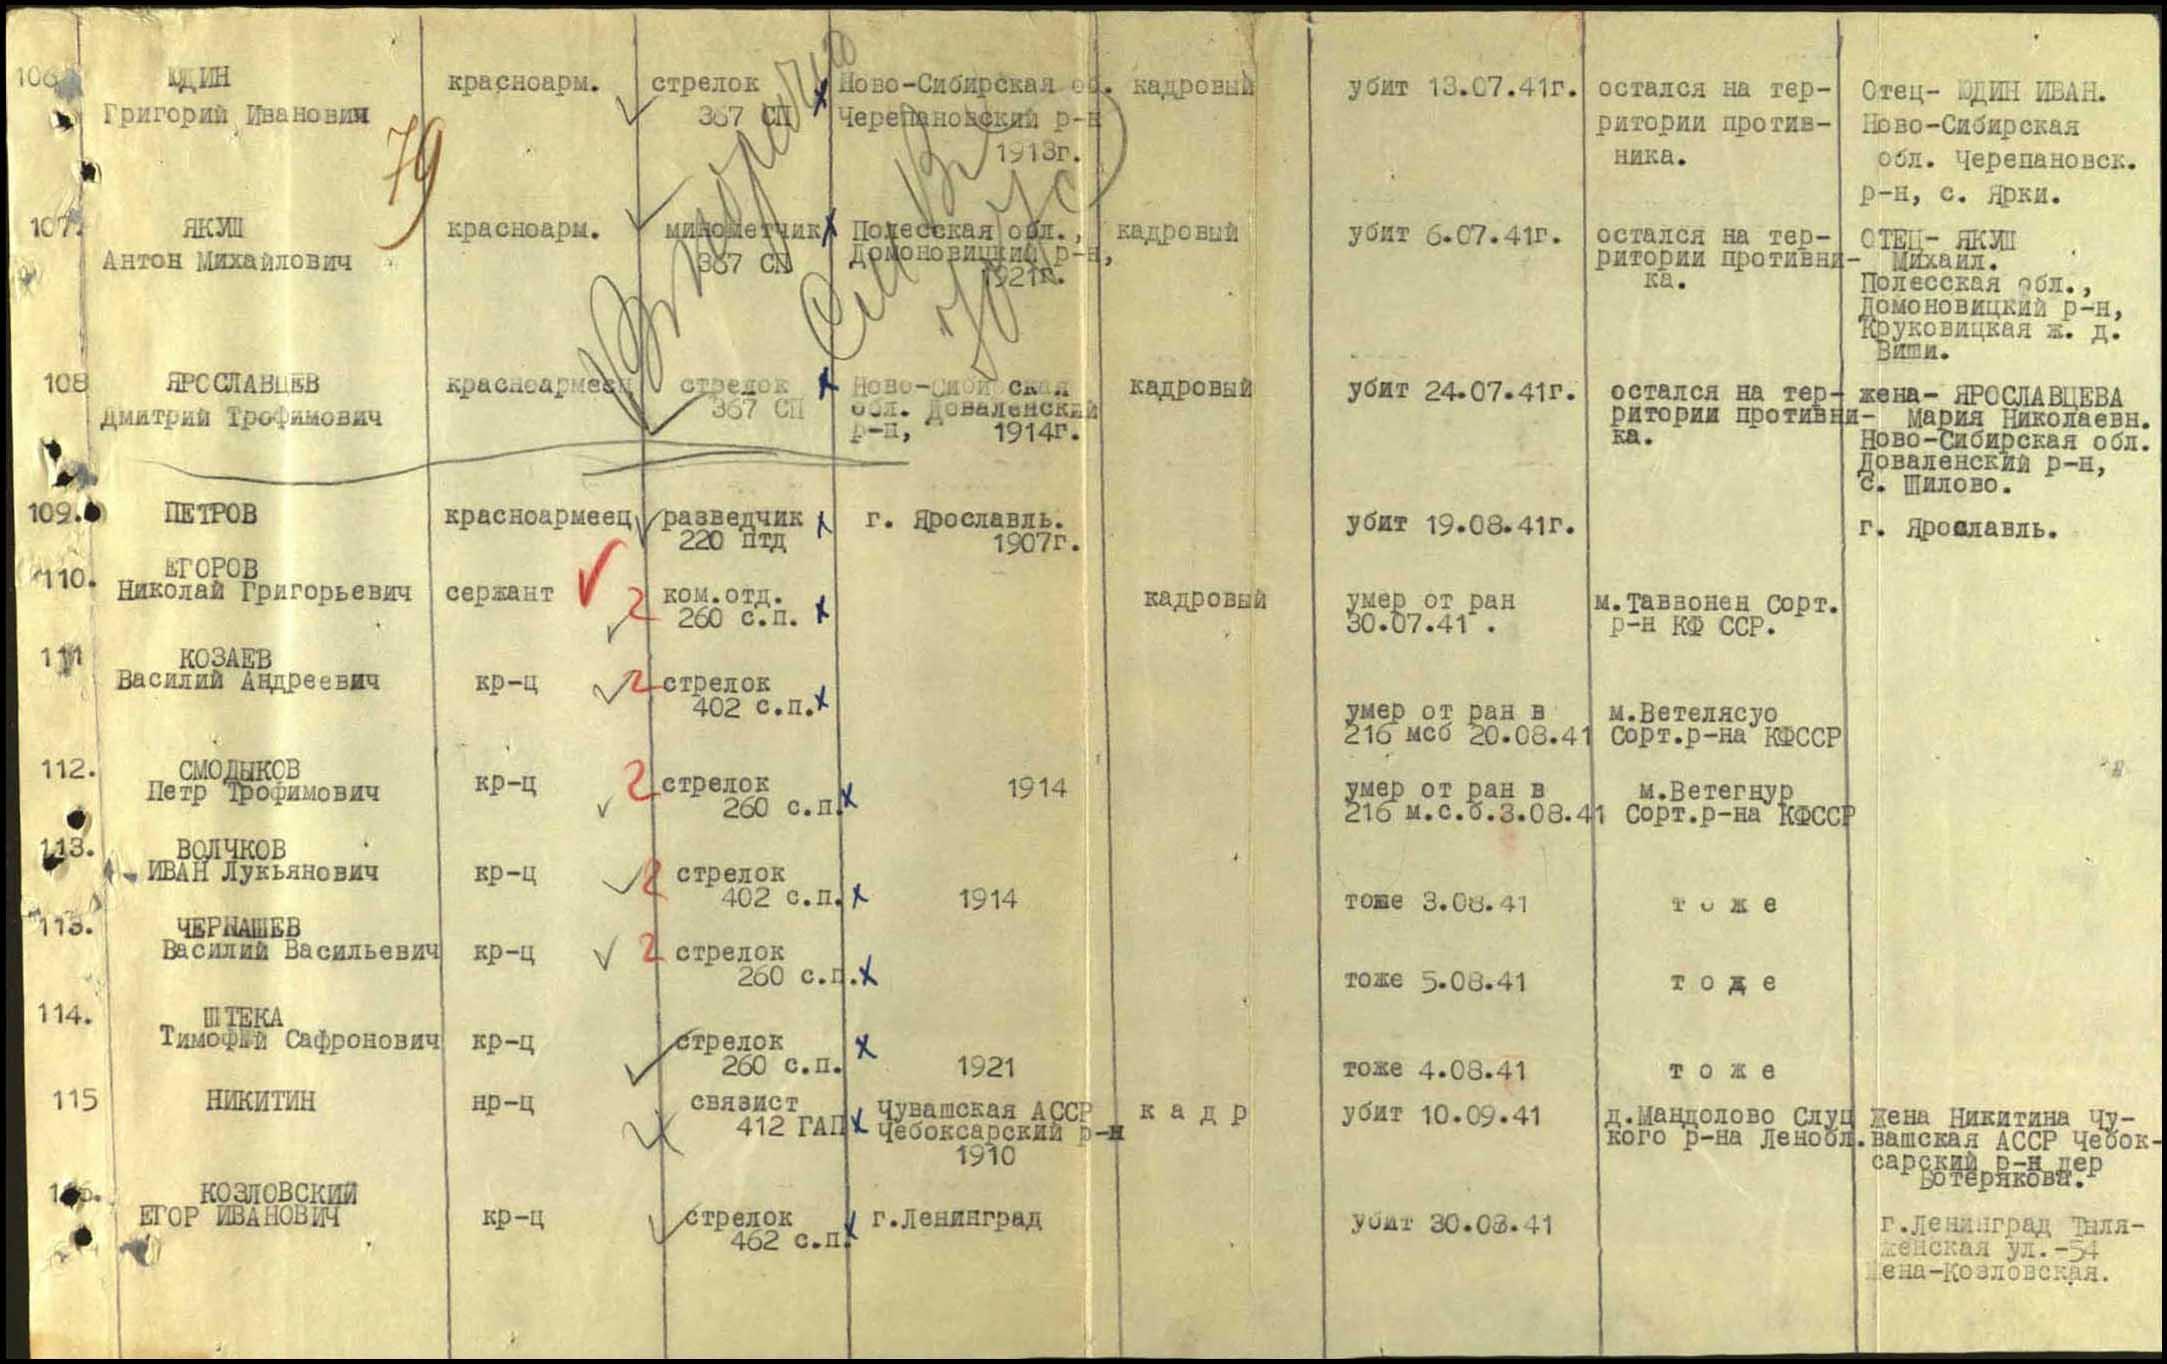 106
ЮДИН
Григорий Иванович
красноарм.
стрелок
367 СП
Ново-Сибирская об.
Черепановский р-н
1913г.
кадровый
убит 13.07.41г.
остался на тер-
ритории против-
ника.
Отец- ЮДИН ИВАН.
Ново-Сибирская
обл. Черепановск.
р-н, с. Ярки.
79
107.
ЯКУШ
Антон Михайлович
красноарм.
минометчик
367 СП
Полесская обл.,
Домоновицкий р-н,
1921г.
кадровый
убит 6.07.41г.
остался на тер-
ритории противни-
ка.
ОТЕЦ- ЯКУШ
Михаил.
Полесская обл.,
Домоновицкий р-н,
Круковицкая ж. д.
Виши.
108
ЯРОСЛАВЦЕВ
Дмитрий Трофимович
красноармеец
стрелок
367 СП
Ново-Сибирская
обл. Доваленский
р-н, 1914г.
кадровый
убит 24.07.41г.
остался на тер-
ритории противни-
ка.
жена- ЯРОСЛАВЦЕВА
Мария Николаевн.
Ново-Сибирская обл.
Доваленский р-н,
с. Шилово.
109.
ПЕТРОВ
красноармеец
разведчик
220 птд
г. Ярославль.
1907г.
убит 19.08.41г.
г. Ярославль.
110.
ЕГОРОВ
Николай Григорьевич
сержант
2
ком.отд.
260 с.п.
кадровый
умер от ран
30.07.41 .
м.Таввонен Сорт.
р-н КФ ССР.
111
КОЗАЕВ
Василий Андреевич
кр-ц
2
стрелок
402 с.п.
умер от ран в
216 мсб 20.08.41
м.Ветелясуо
Сорт.р-на КФССР
112.
СМОДЫКОВ
Петр Трофимович
кр-ц
2
стрелок
260 с.п.
1914
умер от ран в
216 м.с.б.3.08.41
м.Ветегнур
Сорт.р-на КФССР
113.
ВОЛЧКОВ
ИВАН Лукьянович
кр-ц
2
стрелок
402 с.п.
1914
тоже 3.08.41
т о ж е
113.
ЧЕРНАШЕВ
Василий Васильевич
кр-ц
2
стрелок
260 с.п.
тоже 5.08.41
т о ж е
114.
ШТЕКА
Тимофей Сафронович
кр-ц
стрелок
260 с.п.
1921
тоже 4.08.41
т о ж е
115
НИКИТИН
нр-ц
связист
412 ГАП
Чувашская АССР
Чебоксарский р-н
1910
к а д р
убит 10.09.41
д.Мандолово Слуц
кого р-на Ленобл.
Жена Никитина Чу-
вашская АССР Чебок-
сарский р-н дер
Ботерякова.
116.
КОЗЛОВСКИЙ
ЕГОР ИВАНОВИЧ
кр-ц
стрелок
462 с.п.
г.Ленинград
убит 30.08.41
г.Ленинград
ул.-54
Жена-Козловская.